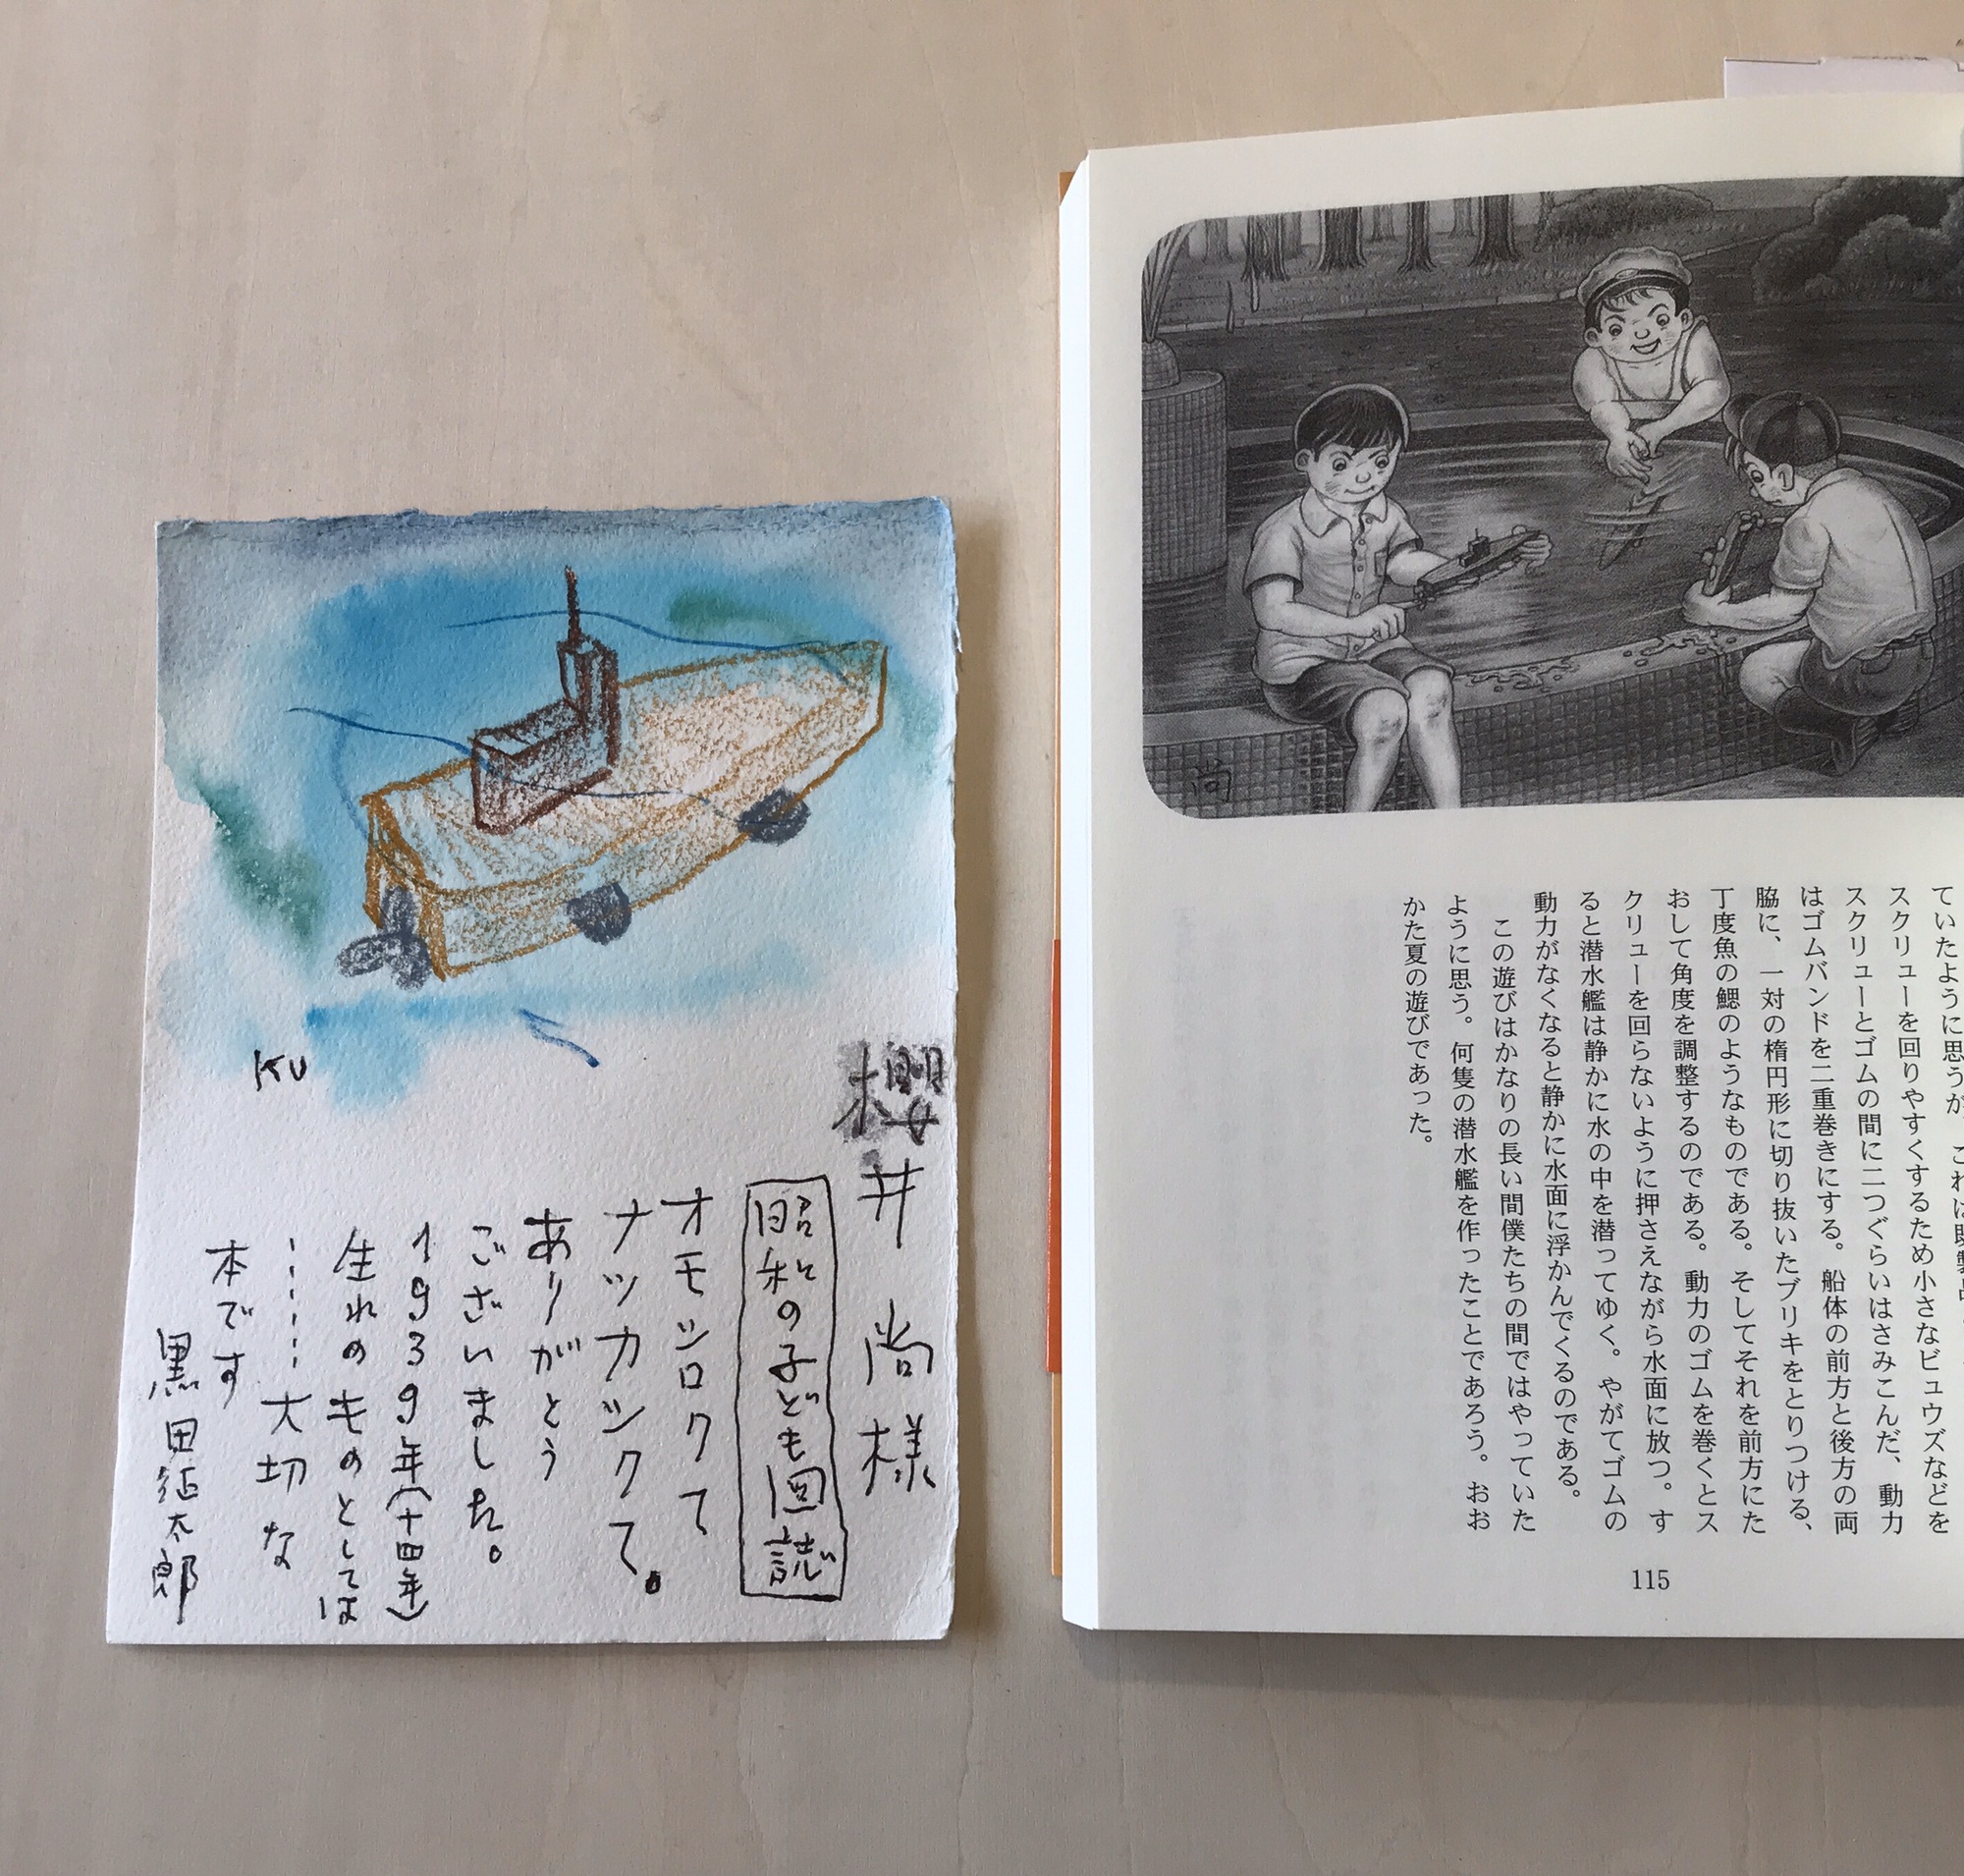 KU
櫻井 尚様
昭和の子ども図誌
オモシロクて
ナツカシクて。
ありがとう
ございました。
1939年(十四年)
生れのものとしては
……大切な
本です
黒田征太郎
尚
ていたように思うが、これは既製品
スクリューを回りやすくするため小さなビュウズなどを
スクリューとゴムの間に二つぐらいはさみこんだ、動力
はゴムバンドを二重巻きにする。船体の前方と後方の両
脇に、一対の楕円形に切り抜いたブリキをとりつける、
丁度魚の鰓のようなものである。そしてそれを前方にた
おして角度を調整するのである。動力のゴムを巻くとス
クリューを回らないように押さえながら水面に放つ。す
ると潜水艦は静かに水の中を潜ってゆく。やがてゴムの
動力がなくなると静かに水面に浮かんでくるのである。
この遊びはかなりの長い間僕たちの間ではやっていた
ように思う。何隻の潜水艦を作ったことであろう。おお
かた夏の遊びであった。
115